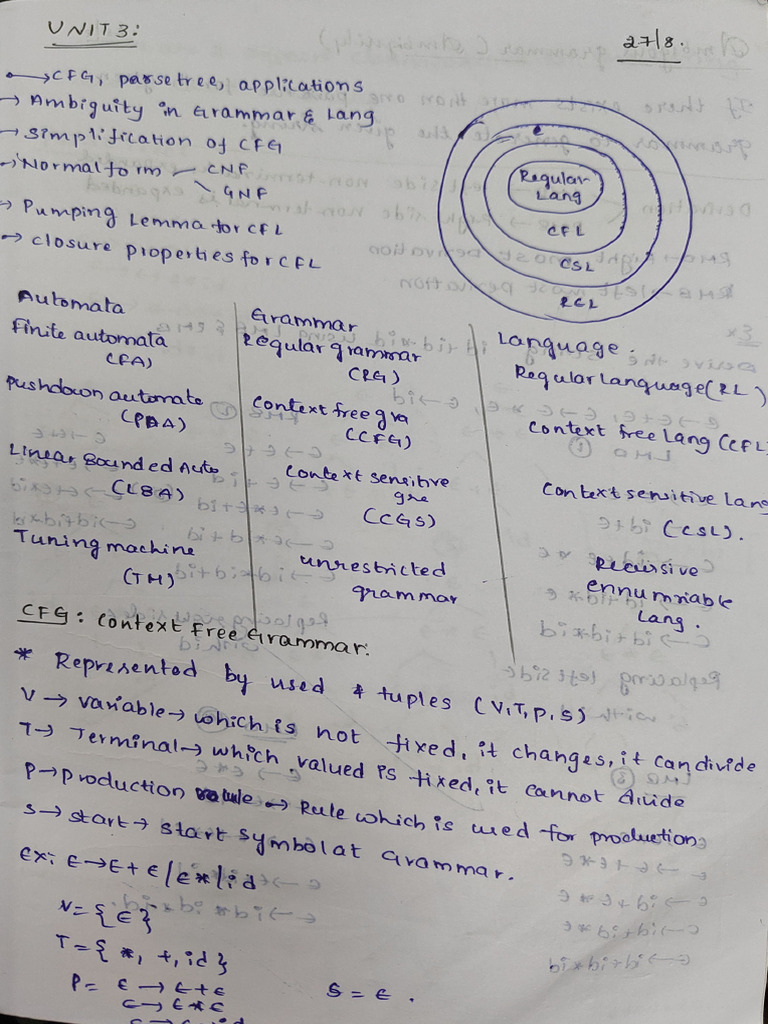 UNIT 3:
27/8.
→ CFG, parse tree, applications
→ Ambiguity in Grammar & Lang
→ Simplification of CFG
→ Normal form - CNF
GNF
→ Pumping Lemma for CFL
→ closure properties for CFL
Regular
Lang
CFL
CSL
REL
Automata Grammar Language.
Finite automata Regular grammar Regular Language (RL)
(FA) (RG)
Pushdown automate Context free gra Context free Lang (CFL
(PDA) (CFG)
Linear Bounded Auto Context sensitive Context sensitive Lang
(LBA) gre (CSL).
(CGS)
Tuning machine unrestricted Recursive
(TM) grammar ennumriable
Lang.
CFG: Context Free Grammar.
* Represented by used 4 tuples (V,T,P,S)
V → variable → which is not fixed, it changes, it can divide
T → Terminal → which valued is fixed, it cannot divide
P → production → Rule which is used for production
S → start → start symbol at Grammar.
Ex: E → E + E / E * / id
V = {E}
T = {*, +, id}
P = E → E + E S = E .
E → E * E